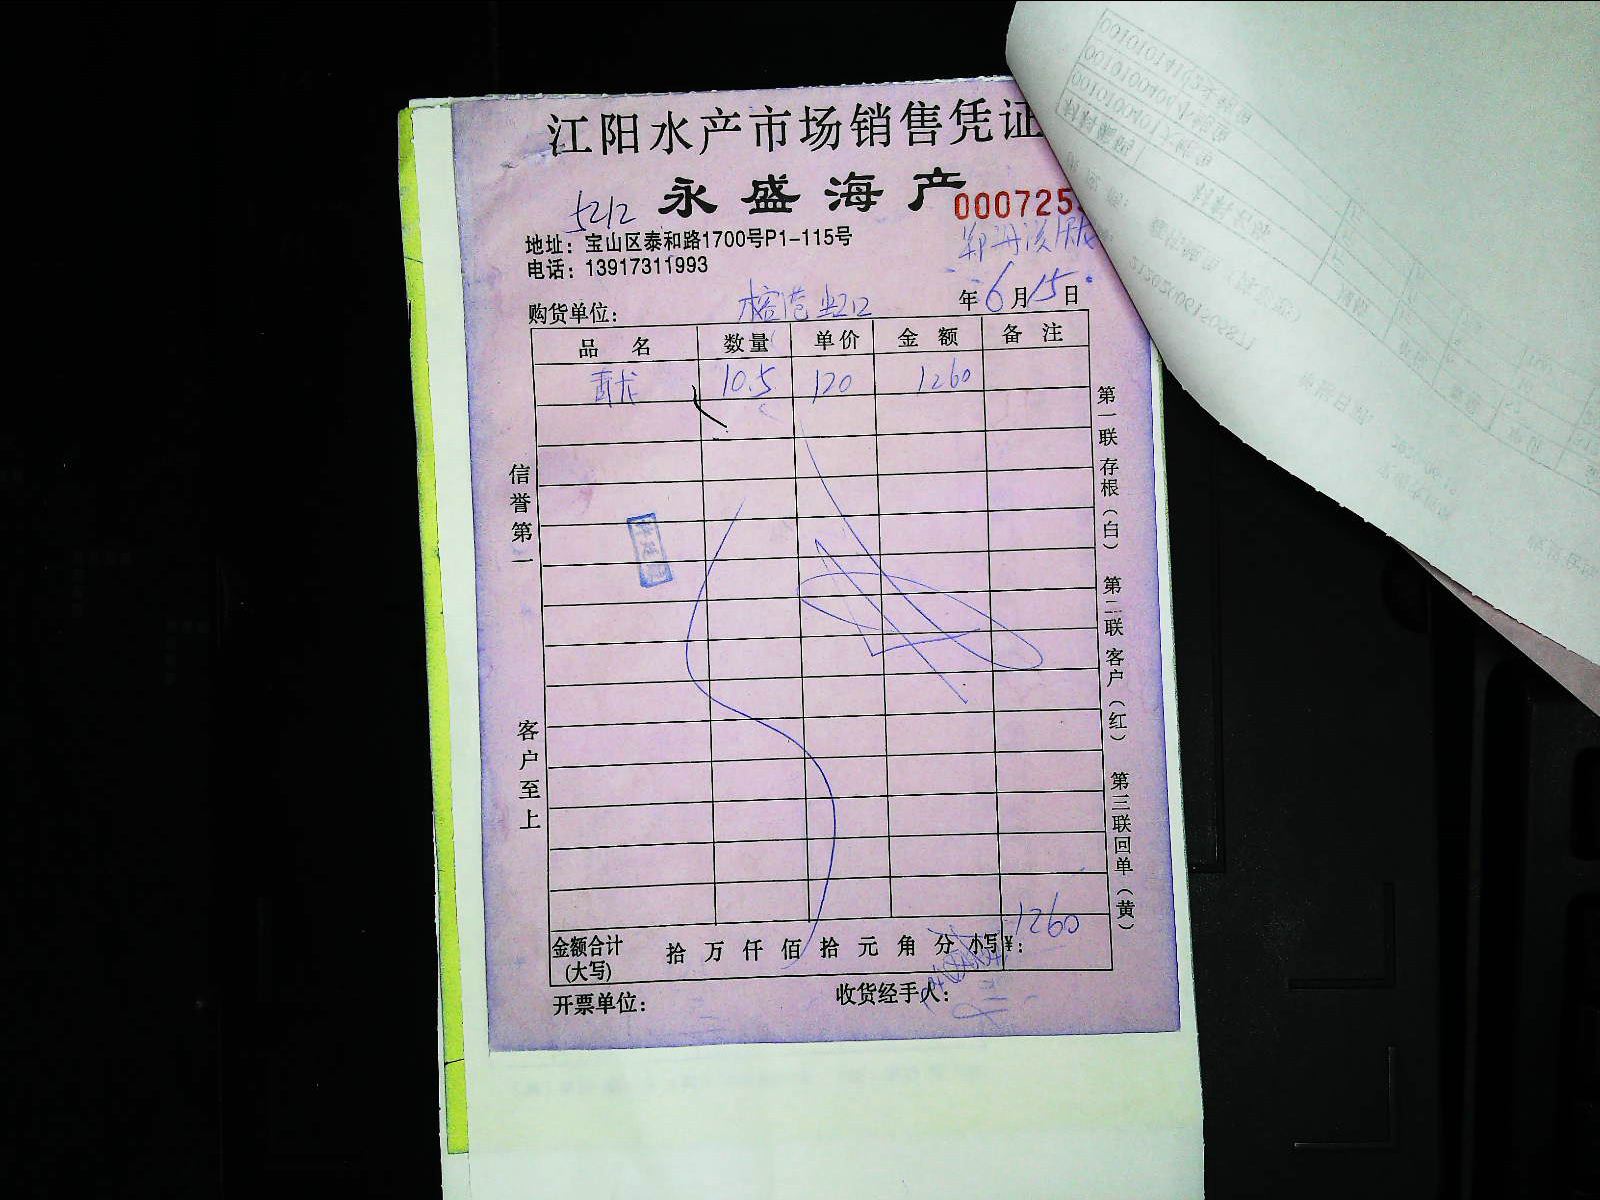 江阳水产市场销售凭证
永盛海产
5212
000725
地址：宝山区泰和路1700号P1-115号
电话：13917311993
年6月15日
购货单位：
品 名 数量 单价 金 额 备 注
青龙 10.5 120 1260
信誉第一
客户至上
第一联 存根（白） 第二联 客户（红） 第三联 回单（黄）
金额合计 拾 万 仟 佰 拾 元 角 分 小写¥： 1260
(大写)
开票单位： 收货经手人：